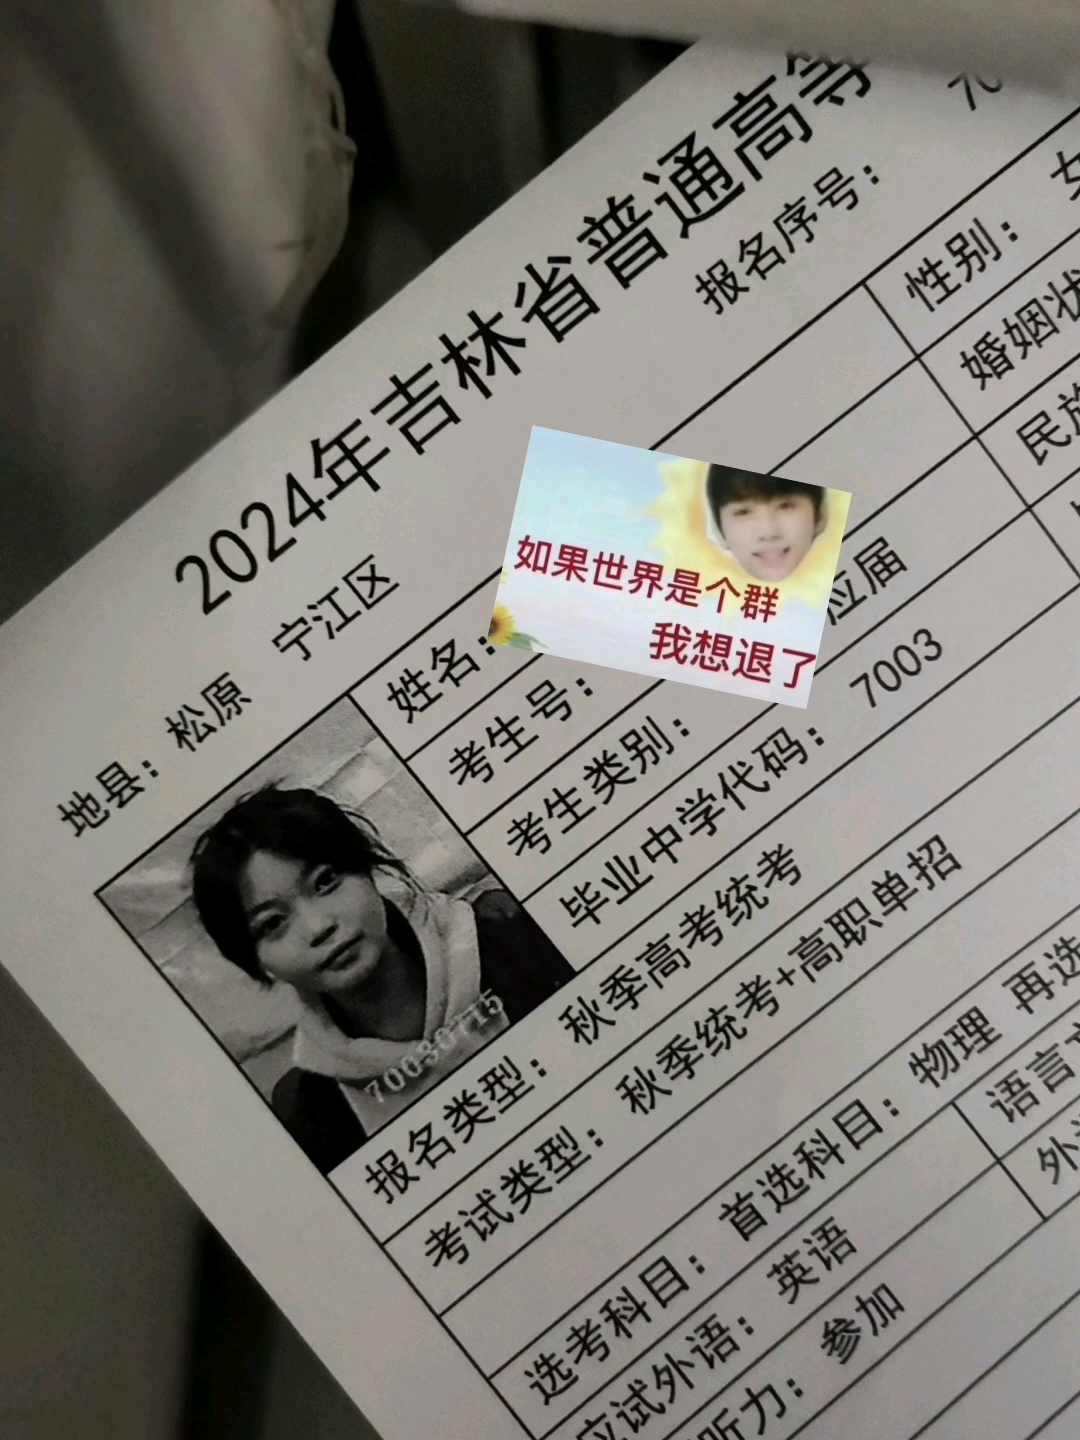 2024年吉林省普通高等
报名序号：
地县：松原 宁江区
姓名：
性别：女
考生号：
婚姻状
考生类别：应届
民族
毕业中学代码：7003
报名类型：秋季高考统考
考试类型：秋季统考+高职单招
选考科目：首选科目：物理 再选
应试外语：英语
语言文
听力：参加
外
如果世界是个群
我想退了